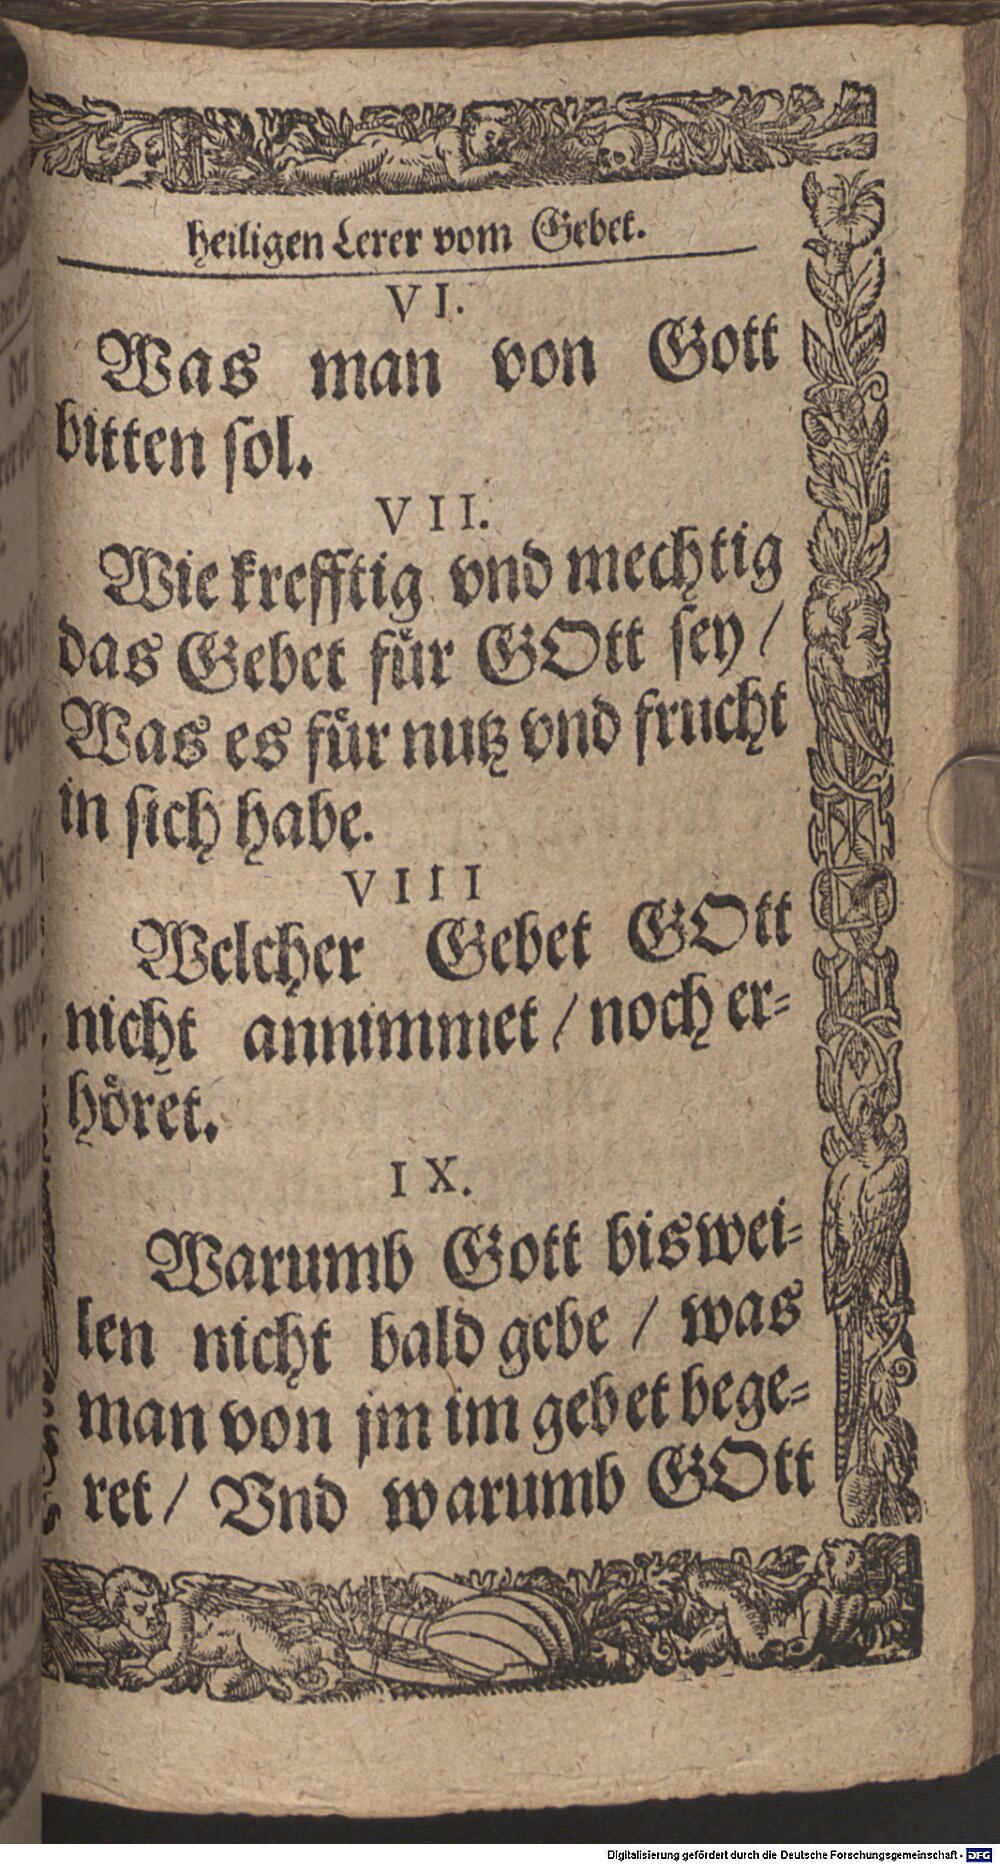 heiligen Lerer vom Gebet.
VI.
Was man von Gott
bitten sol.
VII.
Wie krefftig vnd mechtig
das Gebet für GOtt sey /
Was es für nutz vnd frucht
in sich habe.
VIII
Welcher Gebet GOtt
nicht annimmet / noch er=
höret.
IX.
Warumb Gott biswei=
len nicht bald gebe / was
man von jm im gebet bege=
ret / Vnd warumb GOtt
Digitalisierung gefördert durch die Deutsche Forschungsgemeinschaft - DFG